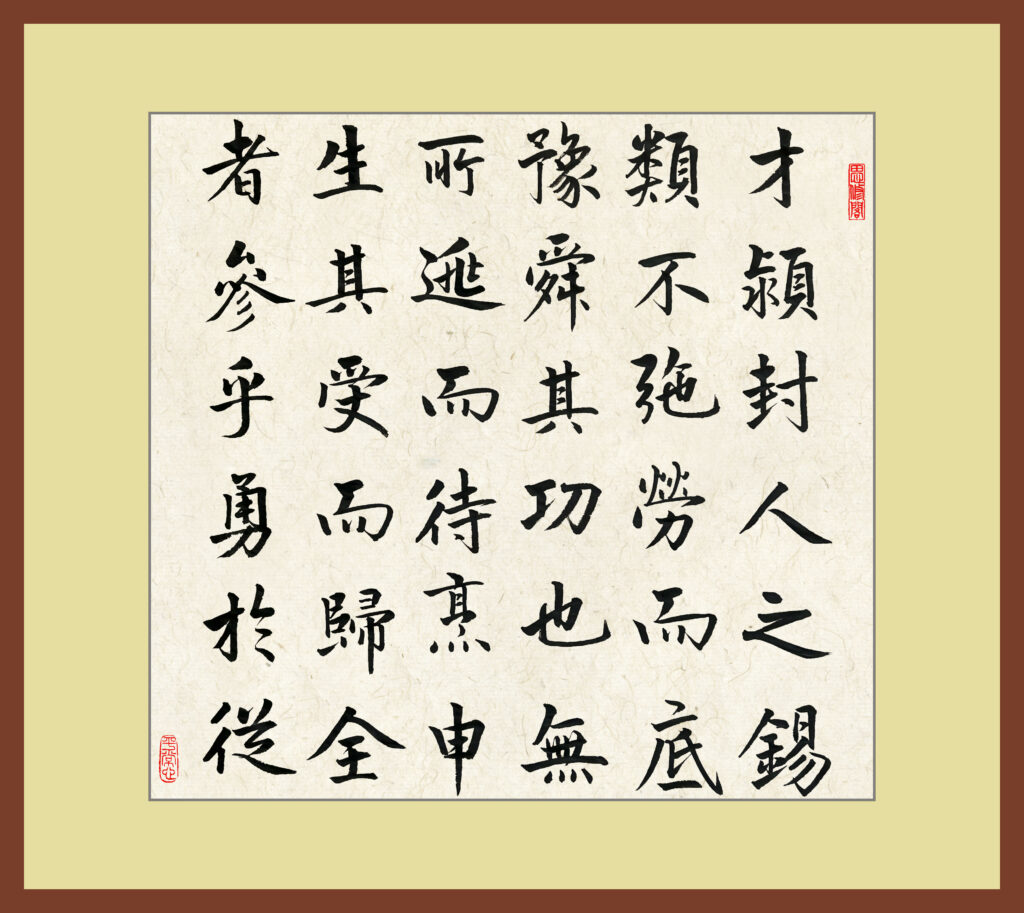 才潁封人之錫
類不弛勞而底
豫舜其功也無
所逃而待烹申
生其受而歸全
者參乎勇於從
思脩閣
平常心